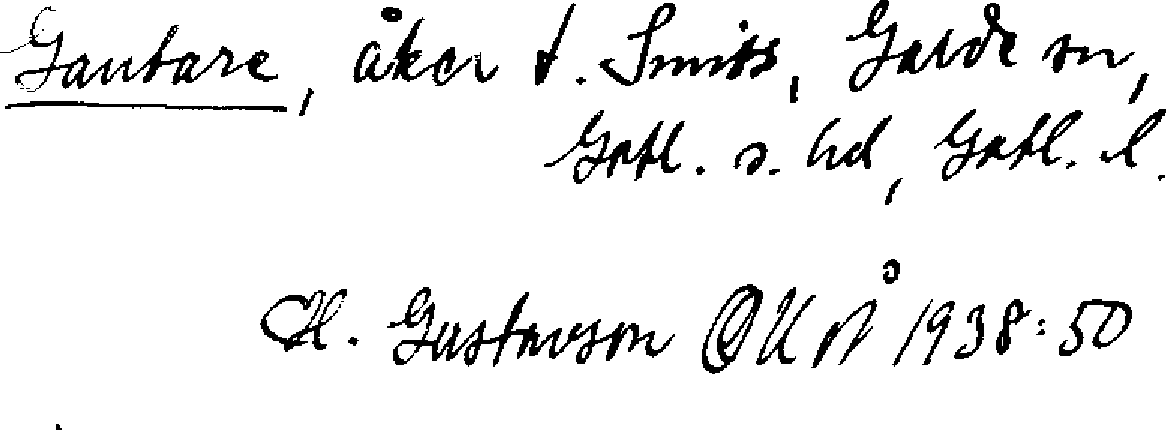 Gantare, åker t. Smiss, Garde sn,
Gotl. s. hd, Gotl. l.
H. Gustavson OUÅ 1938:50